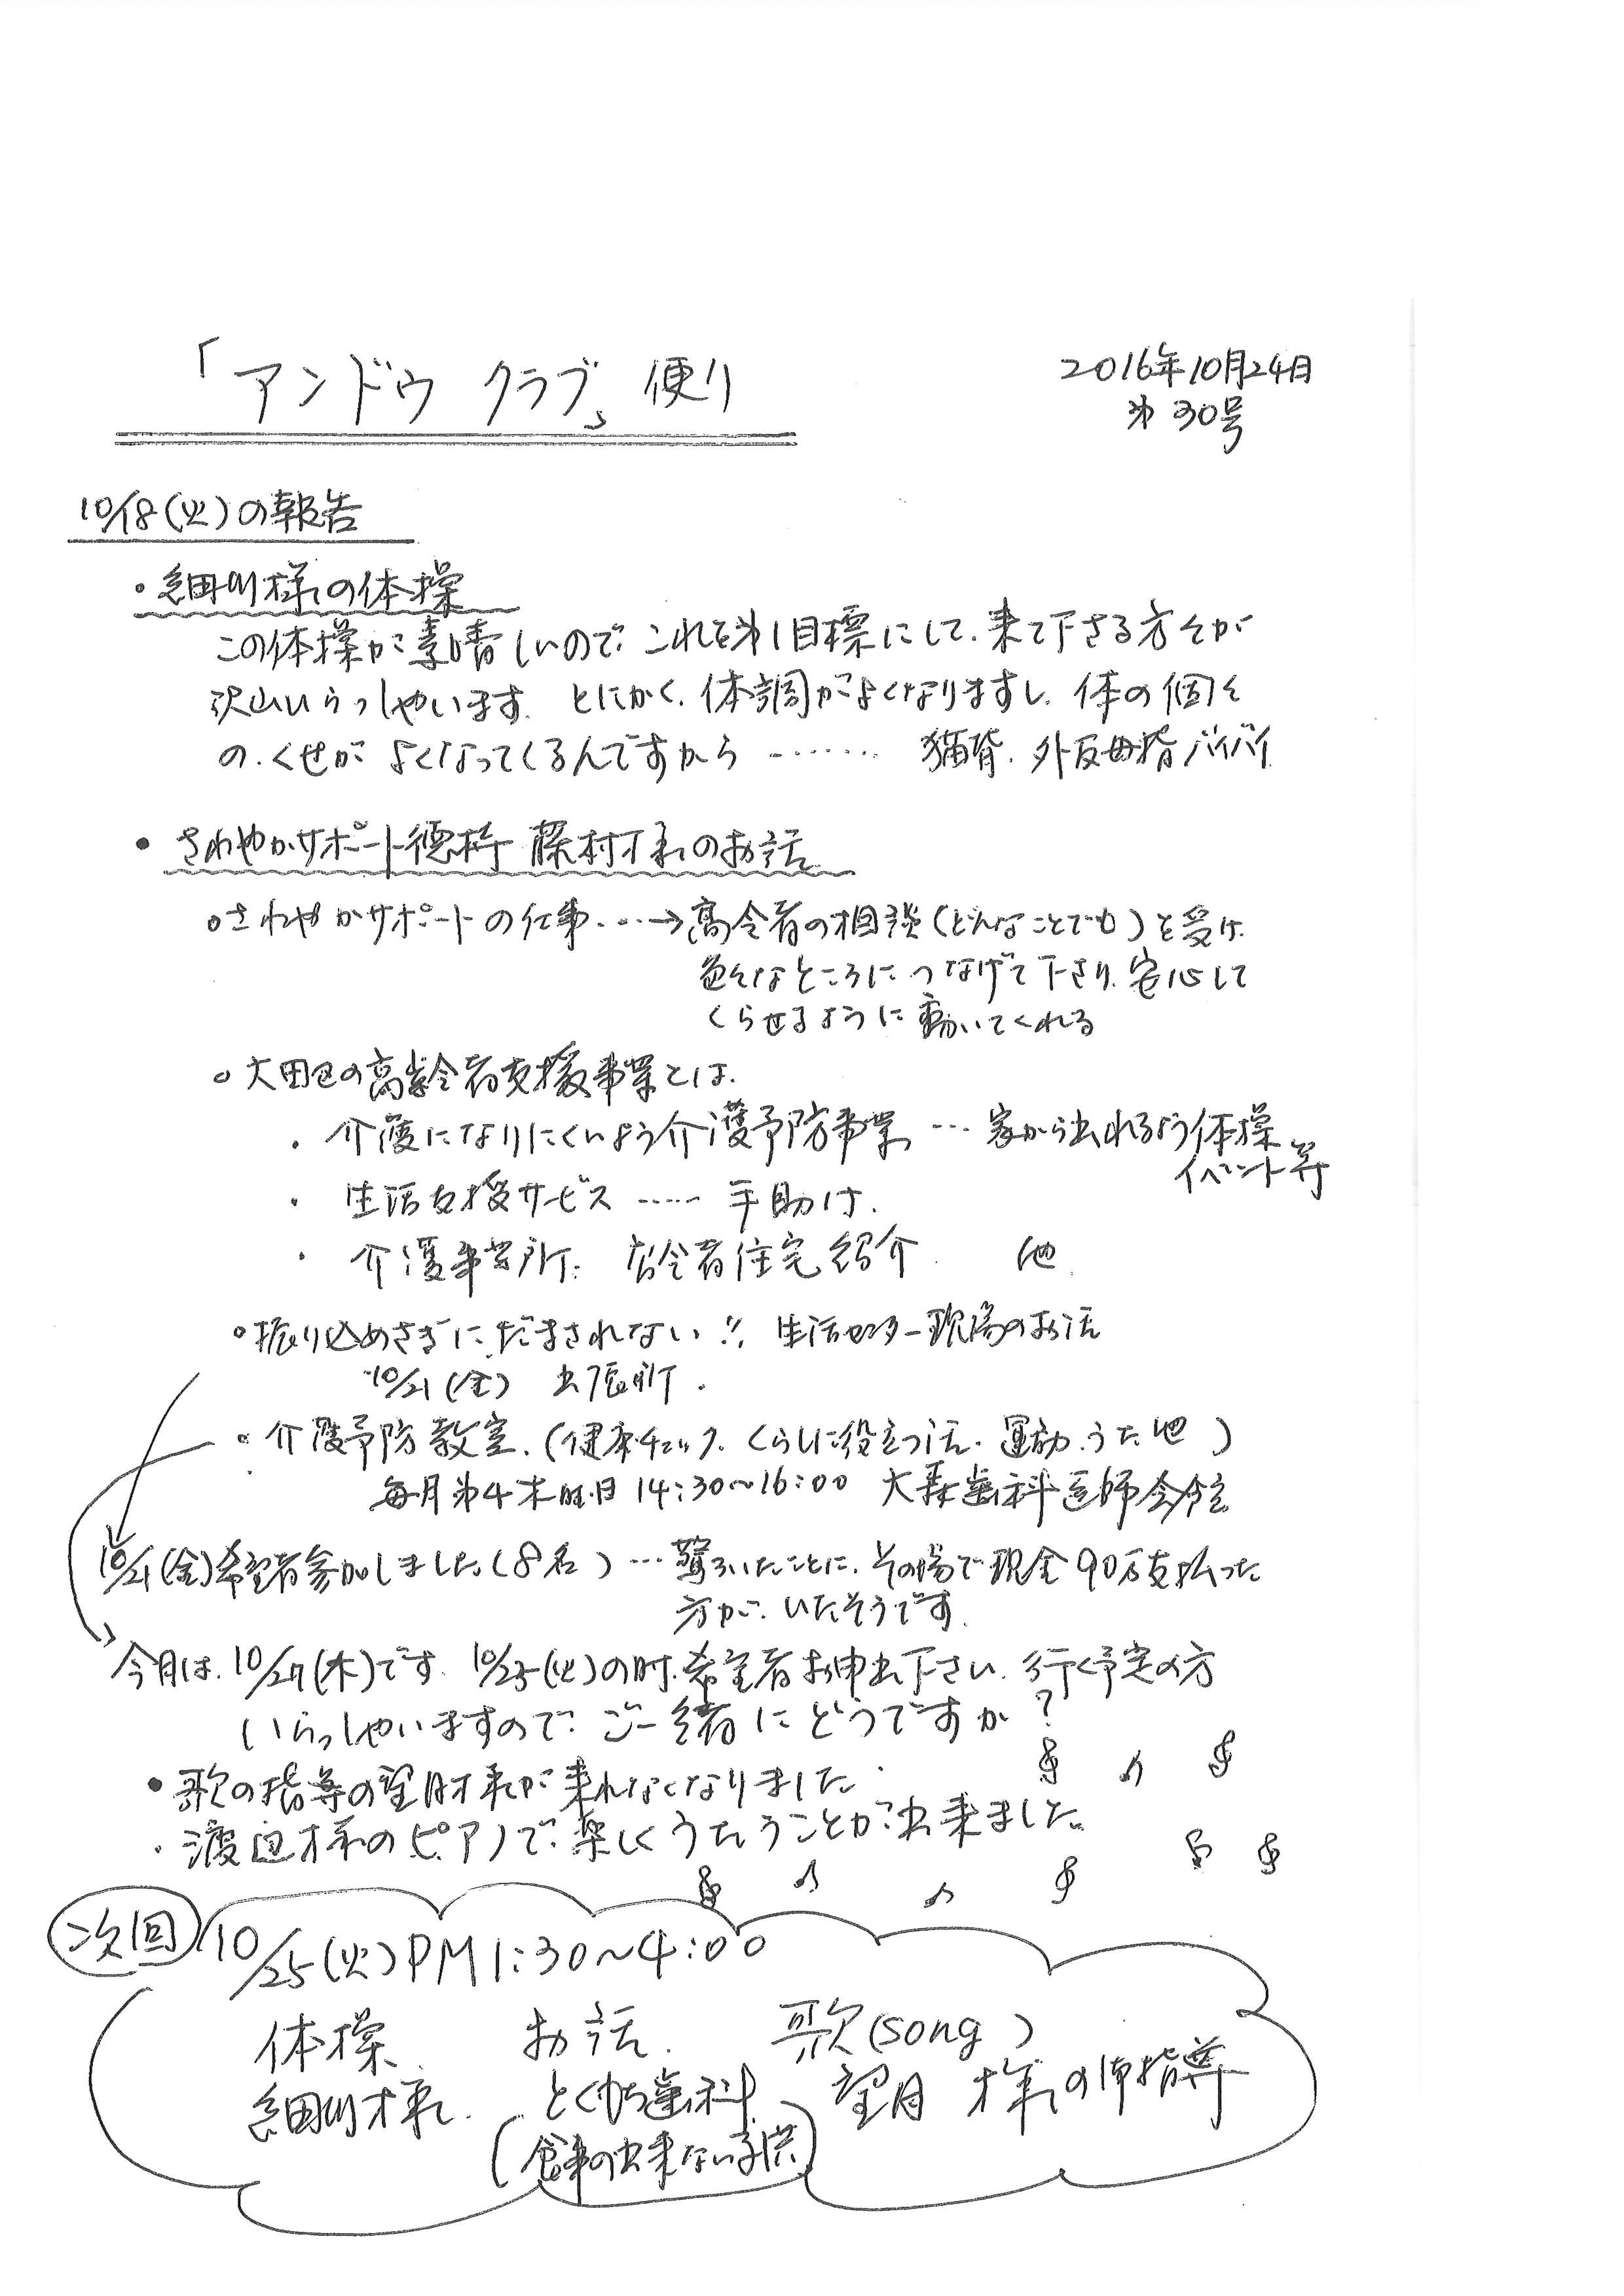 「アンドウ クラブ」便り
2016年10月24日
第30号
10/18(火)の報告
・細川様の体操
この体操が素晴しいので、これを第1目標にして、来て下さる方々が
沢山いらっしゃいます。とにかく、体調がよくなりますし、体の個々
の、くせが よくなってくるんですから ……… 猫背、外反母指バイバイ
・さわやかサポート徳持 藤村様のお話
○さわやかサポートの仕事…→高令者の相談(どんなことでも)を受け、
色々なところにつなげて下さり、安心して
くらせるように動いてくれる
○大田区の高齢者支援事業とは、
・介護になりにくいよう介護予防事業 … 家から出れるよう体操
イベント等
・生活支援サービス …… 手助け、
・介護事業所、高令者住宅紹介 他
○振り込めさぎにだまされない!! 生活センター現場のお話
10/21(金) 出張所.
○介護予防教室、(健康チェック、くらしに役立つ話、運動、うた 他)
毎月第4木曜日 14:30~16:00 大森歯科医師会館
10/21(金)希望者参加しました。(8名) … 驚ろいたことに、その場で現金90万支払った
方が、いたそうです。
今月は、10/27(木)です。10/25(火)の時、希望者お申出下さい、行く予定の方
いらっしゃいますので、ご一緒にどうですか?
・歌の指導の望月様が来れなくなりました。
・渡辺様のピアノで、楽しくうたうことが出来ました。
次回 10/25(火)PM1:30~4:00
体操 お話 歌(song)
細川様 とくもち歯科 望月様の御指導
(食事の出来ない子供)